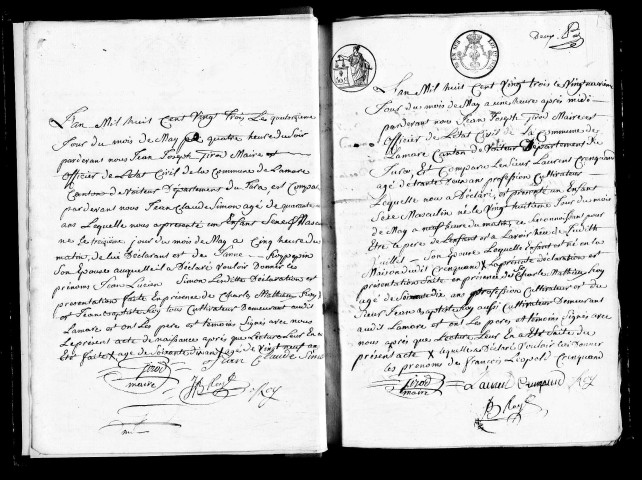 L'an Mil huit Cent Vingt trois Le quatorzieme
Jour du mois de May a quatre heure du soir
pardevant nous Jean Joseph Tirod Maire et
Officier de L'état Civil de la Commune de Lamare
Canton de Voiteur Departement du Jura est Comparu
pardevant nous Jean Claude Simon agé de quarante
ans Lequelle nous a presenté un Enfant Sexe Masculin
nes le treizieme jour du mois de May a Cinq heure du
matin, de lui Déclarant et de Jeanne
Son Epouse auquelle il a Déclaré Vouloir Donner les
prénoms Jean Lucien Simon Les ditte Déclaration et
presentation faite en présence de Charles Mathieu Roy
et Jean Baptiste Roy tous Cultivateur Demeurant audit
Lamare et ont Les peres et temoins Signés avec nous
Le présent acte de naissance après que Lecture Leur En a
Eté faite X agé de Soixante dix ans X agé de Vingt neuf ans
Jean Claude Simon
Tirod
maire
JB Roy
Roy
Deux
L'an Mil huit Cent Vingt trois le Vingt
Jour du mois de May a une heure après midi
pardevant nous Jean Joseph Tirod Maire et
Officier de L'Etat Civil de La Commune de
Lamare Canton de Voiteur Departement du
Jura, Est Comparu Le Sieur Laurent Crinquand
agé de trante ans profession Cultivateur
Lequelle nous a Déclaré et presenté un Enfant
Sexe Masculin né le Vingt huitieme Jour du mois
de May a neuf heure du matin, se reconnoissant pour
Etre le pere de L'enfant et la avoir heu de Judith
Vuillet Son Epouse Lequelle Enfant est né en la
Maison dudit Crinquand X La présente déclaration et
présentation faite en présence de Charle Mathieu Roy
agé de Soixante dix ans profession Cultivateur et du
Sieur Jean Baptiste Roy aussi Cultivateur Demeurant
audit Lamare et ont Les peres et temoins Signés avec
nous après que Lecture Leur En a Eté faite du
présent acte X lequelle a Déclaré Vouloir lui Donner
les pronoms de François Léopold Crinquand
Tirod
maire
Laurent Crinquand
Roy
JB Roy